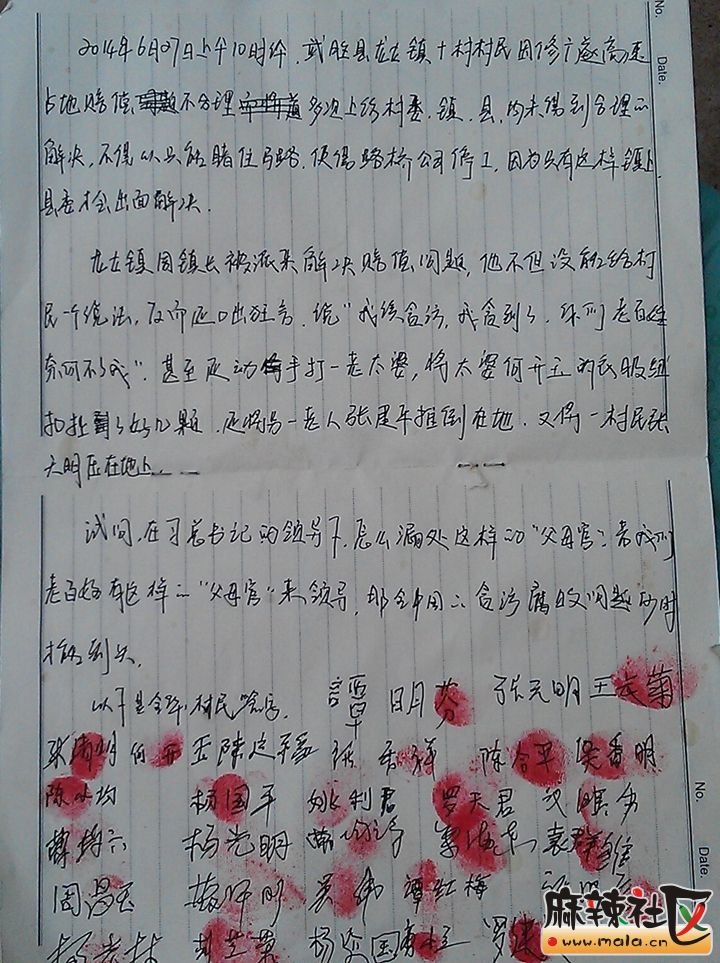 No.
Date.
2014年6月27日上午10时许,武胜县龙女镇十村村民因修广遂高速
占地赔偿不合理多次上访村委、镇、县,均未得到合理的
解决,不得以只能堵住马路,使得路桥公司停工,因为只有这样镇上
县委才会出面解决.
龙女镇周镇长被派来解决赔偿问题,他不但没能给村
民一个说法,反而还口出狂言,说"我该贪污,我贪到了,你们老百姓
奈何不了我",甚至还动手打一老太婆,将太婆何开玉的衣服纽
扣扯到了好几颗,还将另一老人张建平推倒在地.又得一村民张
天明压在地上.
试问,在习总书记的领导下,怎么漏处这样的"父母官",若我们
老百姓有这样的"父母官"来领导,那全中国的贪污腐败问题何时
才能到头.
以下是全体村民签字.
譚明芬 张元明 王云菊
何开玉 陈建平 陈合平 侯香明
陈小均 杨国平 姚利君 罗天君
杨光明 袁群
周昌玉 吴 譚红梅
No.
Date.
麻辣社区
www.mala.cn